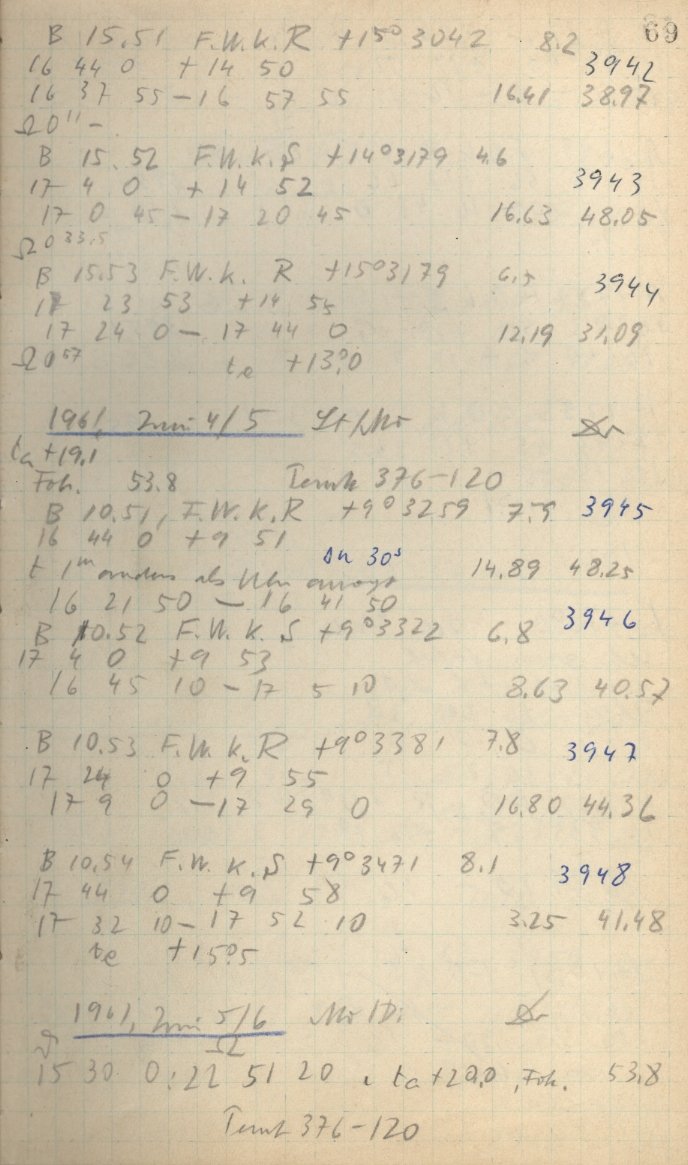 69
B 15.51 F.W.K.R +15° 3042 8.2
16 44 0 +14 50 3942
16 37 55 – 16 57 55 16.41 38.97
Ω 0 11 –
B 15.52 F.W.K.S +14° 3179 4.6
17 4 0 +14 52 3943
17 0 45 – 17 20 45 16.63 48.05
Ω 0 33.5
B 15.53 F.W.K. R +15° 3179 6.5 3944
17 23 53 +14 55
17 24 0 – 17 44 0 12.19 31.09
Ω 0 57 te +13.°0
1961, Juni 4/5
ta +19.1
Fok. 53.8 376–120
B 10.51, F.W.K.R +9° 3259 7.9 3945
16 44 0 +9 51
t 1m anders als Uhr 30s 14.89 48.25
16 21 50 – 16 41 50
B 10.52 F.W.K.S +9° 3322 6.8 3946
17 4 0 +9 53
16 45 10 – 17 5 10 8.63 40.57
B 10.53 F.W.K.R +9° 3381 7.8 3947
17 24 0 +9 55
17 9 0 – 17 29 0 16.80 44.36
B 10.54 F.W.K.S +9° 3471 8.1 3948
17 44 0 +9 58
17 32 10 – 17 52 10 3.25 41.48
te +15.°5
1961, Juni 5/6 Mo/Di
15 30 0 : 22 51 20 ta +20.0, Fok. 53.8
376–120